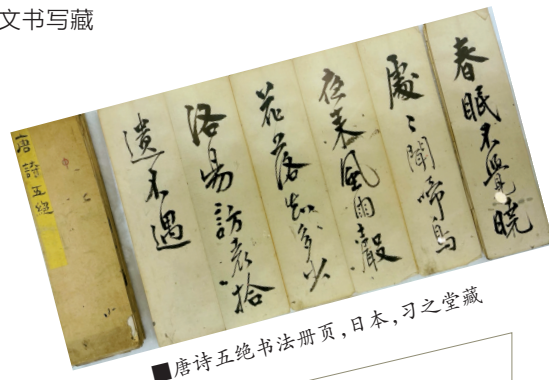 文书写藏
春眠不覺曉
處〻聞啼鳥
夜来風雨聲
花落知多少
洛陽訪袁拾
遺不遇
唐詩五絕
小
■唐诗五绝书法册页,日本,习之堂藏